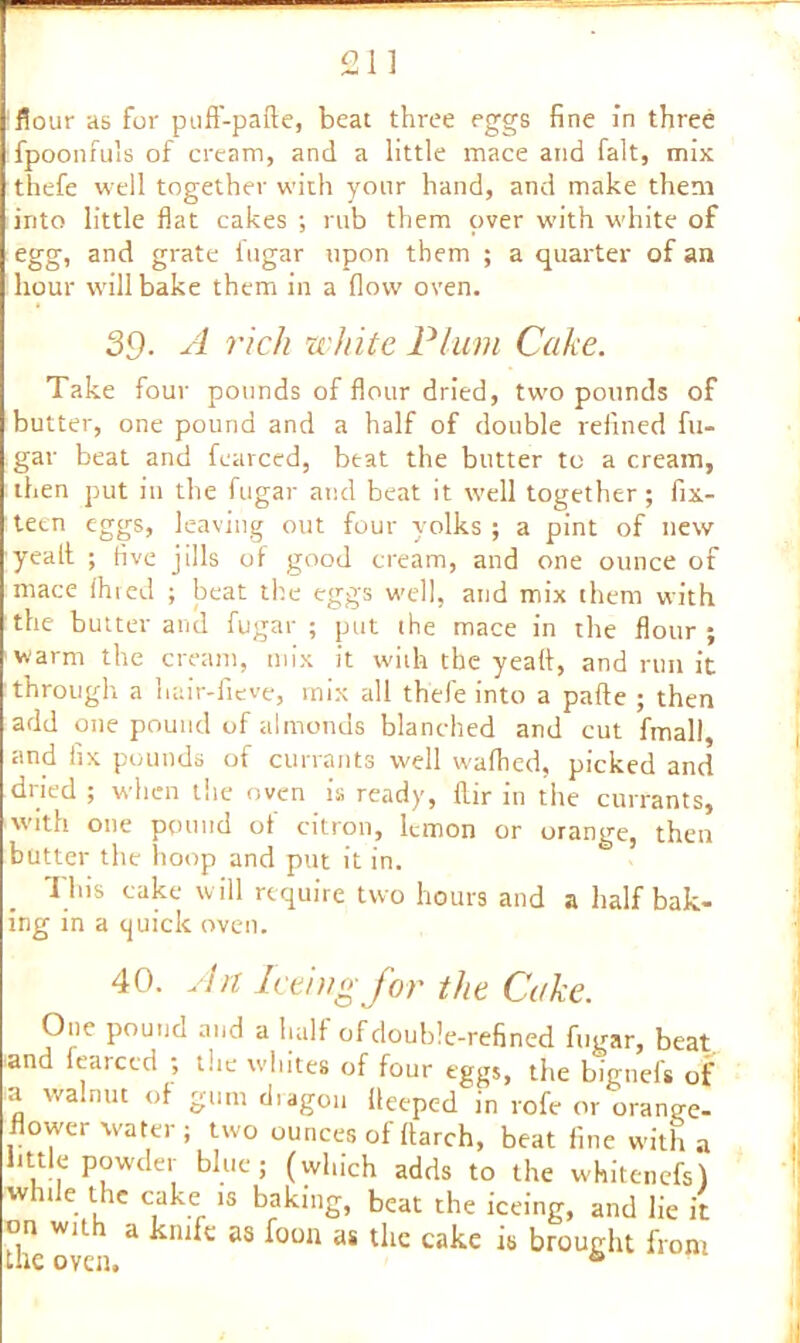 211
flour as for puff-paſte, beat three eggs fine in three
ſpoonfuls of cream, and a little mace and ſalt, mix
theſe well together with your hand, and make them
into little flat cakes ; rub them over with white of
egg, and grate ſugar upon them ; a quarter of an
hour will bake them in a ſlow oven.
39. A rich white Plum Cake.
Take four pounds of flour dried, two pounds of
butter, one pound and a half of double refined ſu-
gar beat and ſearced, beat the butter to a cream,
then put in the ſugar and beat it well together ; ſix-
teen eggs, leaving out four yolks ; a pint of new
yeaſt ; five jills of good cream, and one ounce of
mace ſhred ; beat the eggs well, and mix them with
the butter and ſugar ; put the mace in the flour ;
warm the cream, mix it with the yeaſt, and run it
through a hair-ſieve, mix all theſe into a paſte ; then
add one pound of almonds blanched and cut ſmall,
and ſix pounds of currants well waſhed, picked and
dried ; when the oven is ready, ſtir in the currants,
with one pound of citron, lemon or orange, then
butter the hoop and put it in.
This cake will require two hours and a half bak-
ing in a quick oven.
40. An Iceing for the Cake.
One pound and a half of double-refined ſugar, beat
and ſearced ; the whites of four eggs, the bigneſs of
a walnut of gum dragon ſteeped in roſe or orange-
flower water ; two ounces of ſtarch, beat fine with a
little powder blue ; (which adds to the whiteneſs)
while the cake is baking, beat the iceing, and lie it
on with a knife as ſoon as the cake is brought from
the oven.